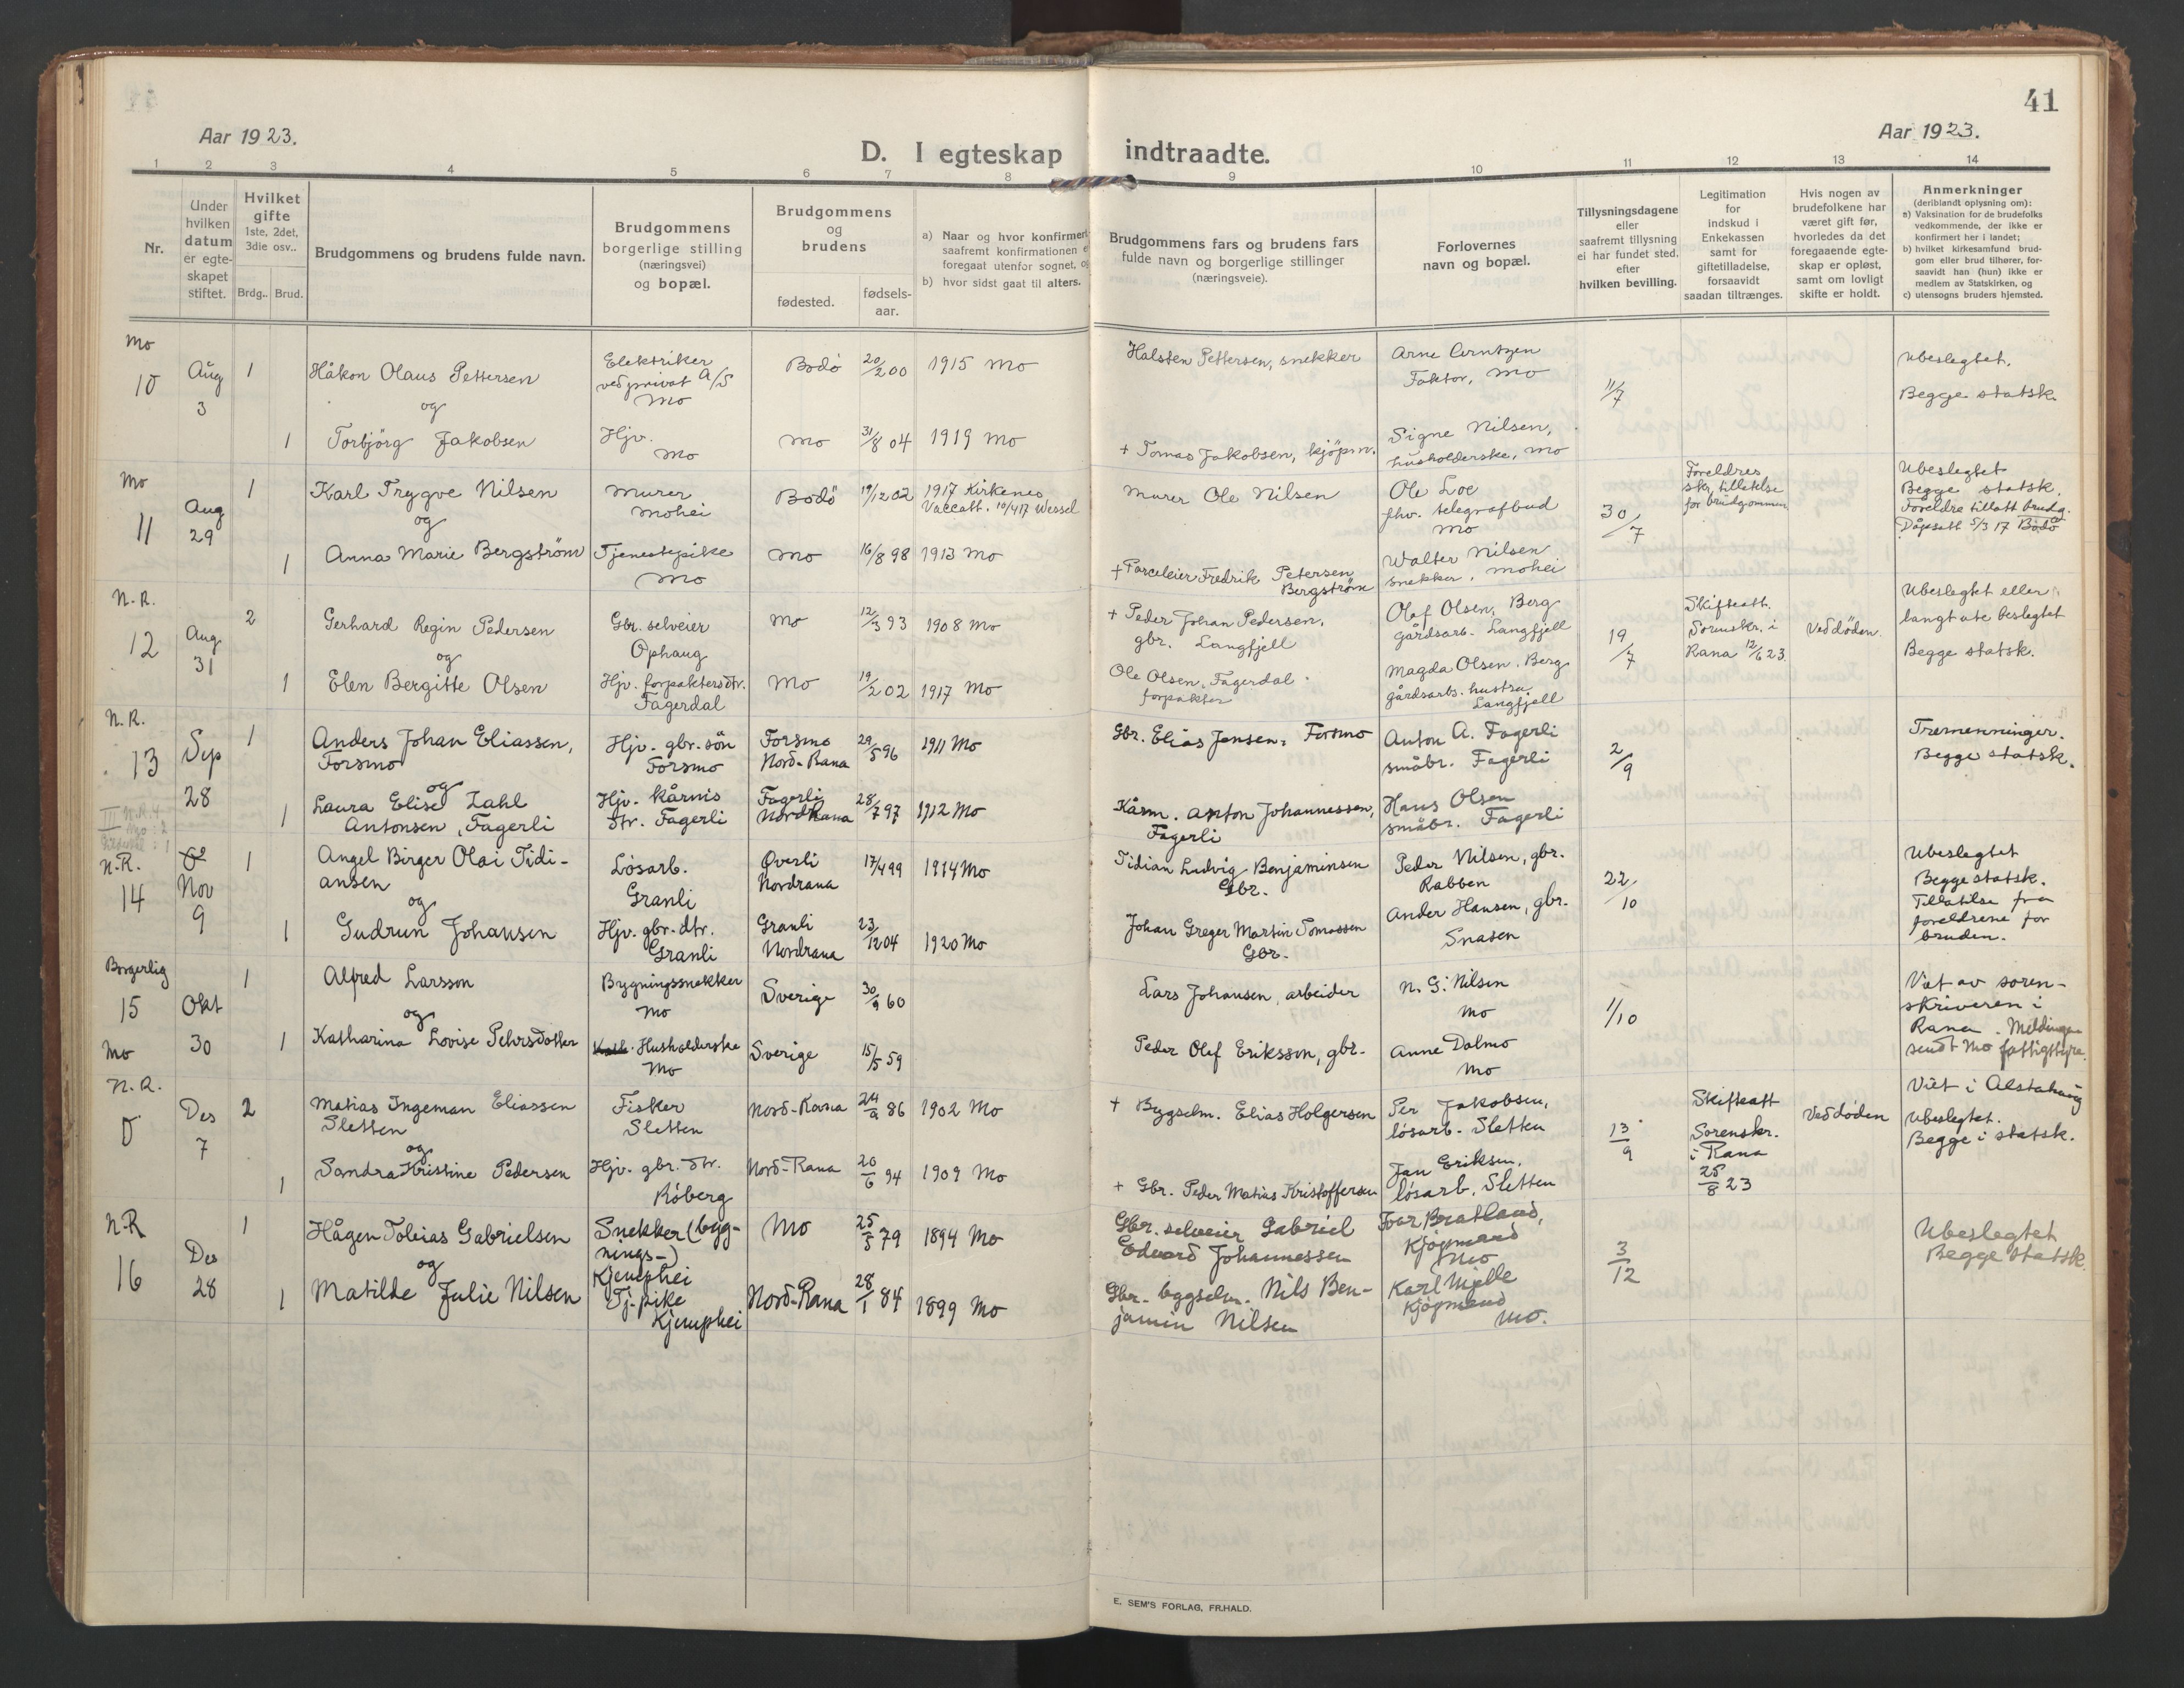 41
Aar 1923.
Aar 1923.
D. I egteskap indtraadte.
1 2 3 4 5 6 7 8 9 10 11 12 13 14
Nr.
Under
hvilken
datum
er egte-
skapet
stiftet.
Hvilket
gifte
1ste, 2det,
3die osv..
Brdg..
Brud.
Brudgommens og brudens fulde navn.
Brudgommens
borgerlige stilling
(næringsvei)
og bopæl.
Brudgommens
og
brudens
fødested.
fødsels-
aar.
a) Naar og hvor konfirmert
saafremt konfirmationen e
foregaat utenfor sognet, og
b) hvor sidst gaat til alters.
Brudgommens fars og brudens fars
fulde navn og borgerlige stillinger
(næringsveie).
Forlovernes
navn og bopæl.
Tillysningsdagene
eller
saafremt tillysning
ei har fundet sted,
efter
hvilken bevilling.
Legitimation
for
indskud i
Enkekassen
samt for
giftetilladelse,
forsaavidt
saadan tiltrænges.
Hvis nogen av
brudefolkene har
været gift før,
hvorledes da det
foregaaende egte-
skap er opløst,
samt om lovligt
skifte er holdt.
Anmerkninger
(deriblandt oplysning om):
a) Vaksination for de brudefolks
vedkommende, der ikke er
konfirmert her i landet;
b) hvilket kirkesamfund brud-
gom eller brud tilhører, for-
saavidt han (hun) ikke er
medlem av Statskirken, og
c) utensogns bruders hjemsted.
Mo
10
Aug
3
1
Håkon Olaus Pettersen
og
Elektriker
ved privat A/S
Mo
Bodö
20/2 00
1915 Mo
Halsten Pettersen, snekker
Arne Arntzen
Faktor, Mo
11/7
Ubeslegtet.
Begge statsk.
1
Torbjörg Jakobsen
Hjv.
Mo
Mo
31/8 04
1919 Mo
+ Tomas Jakobsen, kjöpm.
Signe Nilsen,
husholderske, Mo
Mo
11
Aug
29
1
Karl Trygve Nilsen
og
Murer
Mohei
Bodö
19/12 02
1917 Kirkenes
Vaccatt. 10/4 17 Wessel
Murer Ole Nilsen
Ole Loe
fhv. telegrafbud
Mo
30/7
Foreldres
skr. tillatelse
for brudgommen
Ubeslegtet
Begge statsk.
Foreldre tillatt brudg.
Dåpsatt 5/3 17 Bodö
1
Anna Marie Bergström
Tjenestepike
Mo
Mo
16/8 98
1913 Mo
+ Parceleier Fredrik Petersen
Bergström
Walter Nilsen
snekker, Mohei
N.R.
12
Aug
31
2
Gerhard Regin Pedersen
og
Gbr. selveier
Ophaug
Mo
12/3 93
1908 Mo
+ Peder Johan Pedersen,
gbr. Langfjell
Olaf Olsen, Berg
gårdsarb. Langfjell
19/7
Skifteatt.
Sorenskr. i
Rana 12/6 23.
Ved döden.
Ubeslegtet eller
langt ute beslegtet
Begge statsk.
1
Elen Bergitte Olsen
Hjv. forpaktersdtr.
Fagerdal
Mo
19/2 02
1917 Mo
Ole Olsen, Fagerdal
forpakter
Magda Olsen, Berg
gårdsarb. hustru
Langfjell
N.R.
13
Sep
28
1
Anders Johan Eliassen,
Forsmo
og
Hjv. gbr. sön
Forsmo
Forsmo
Nord-Rana
29/5 96
1911 Mo
Gbr. Elias Jensen, Forsmo
Anton A. Fagerli
småbr. Fagerli
2/9
Tremenninger.
Begge statsk.
1
Laura Elise Zahl
Antonsen, Fagerli
Hjv. Kårms
dtr. Fagerli
Fagerli
NordRana
28/7 97
1912 Mo
Kårm. Anton Johannessen,
Fagerli
Hans Olsen
småbr. Fagerli
N.R.
14
Nov
9
1
Angel Birger Olai Tidi-
ansen
og
Lösarb.
Granli
Överli
Nordrana
17/4 99
1914 Mo
Tidian Ludvig Benjaminsen
Gbr.
Peder Nilsen, gbr.
Rabben
22/10
Ubeslegtet
Begge statsk.
Tillatelse fra
foreldrene for
bruden.
1
Gudrun Johansen
Hjv. gbr. dtr.
Granli
Granli
Nordrana
23/12 04
1920 Mo
Johan Greger Martin Tomassen
Gbr.
Ander Hansen, gbr.
Snasen
Borgerlig
15
Mo
Okt
30
1
Alfred Larsson
og
Bygningssnekker
Mo
Sverige
30/9 60
Lars Johansen, arbeider
N. G. Nilsen
Mo
1/10
Viet av soren-
skriveren i
Rana. Meldingen
sendt Mo fattigstyre.
1
Katharina Lovise Pehrsdotter
Husholderske
Mo
Sverige
15/5 59
Peder Olof Eriksson, gbr.
Anne Dalmo
Mo
N.R.
0
Des
7
2
Matias Ingeman Eliassen
Sletten
og
Fisker
Sletten
Nord-Rana
24/9 86
1902 Mo
+ Bygselm. Elias Holgersen
Per Jakobsen,
lösarb. Sletten
13/9
Skifteatt
Sorenskr.
i Rana
25/8 23
Ved döden
Viet i Alstahaug
Ubeslegtet.
Begge i statsk.
1
Sandra Kristine Pedersen
Hjv. gbr. dtr.
Röberg
Nord-Rana
20/6 94
1909 Mo
+ Gbr. Peder Matias Kristoffersen
Jan Eriksen,
lösarb. Sletten
N.R
16
Des
28
1
Hågen Tobias Gabrielsen
og
Snekker (byg-
nings-)
Kjemphei
Mo
25/5 79
1894 Mo
Gbr. selveier Gabriel
Edvard Johannessen
Ivar Bratland,
Kjöpmand
Mo
3/12
Ubeslegtet
Begge statsk.
1
Matilde Julie Nilsen
Tj. pike
Kjemphei
Nord-Rana
28/1 84
1899 Mo
Gbr. bygselm. Nils Ben-
jamin Nilsen
Karl Mjelle
Kjöpmand
Mo.
E. SEM'S FORLAG, FR.HALD.